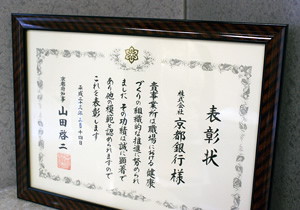 表彰状
株式会社 京都銀行 様
貴事業所は職場における健康
づくりの組織的な推進に努められ
ました その功績は誠に顕著で
あり他の模範と認められますので
これを表彰します
平成二十三年二月十四日
京都府知事 山田啓二